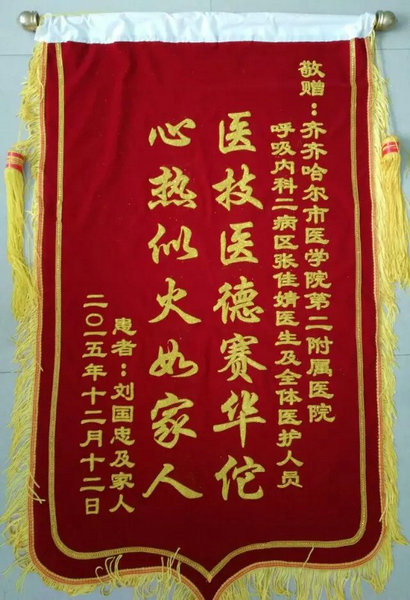 敬赠：齐齐哈尔市医学院第二附属医院
呼吸内科二病区张佳婧医生及全体医护人员
医技医德赛华佗
心热似火如家人
患者：刘国忠及家人
二〇一五年十二月十二日